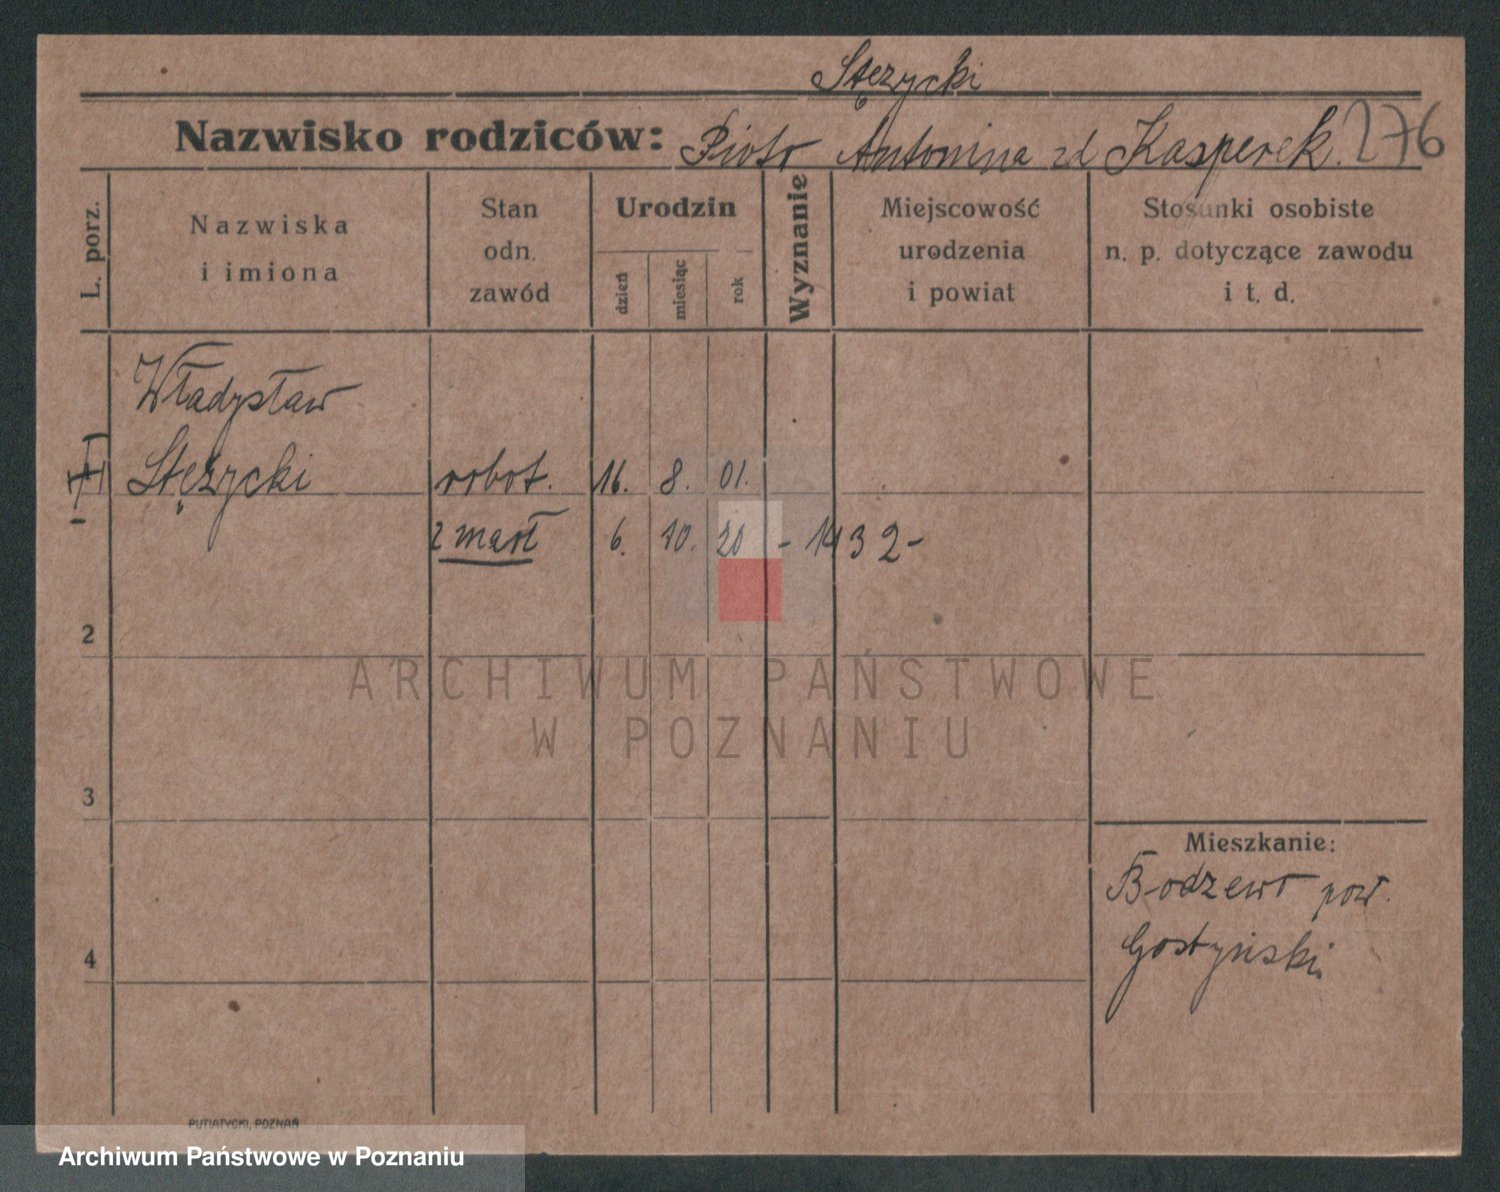 Stęzycki
Nazwisko rodziców: Piotr Antonina zd Kasperek. 276
L. porz.
Nazwiska i imiona
Stan odn. zawód
Urodzin
dzień miesiąc rok
Wyznanie
Miejscowość urodzenia i powiat
Stosunki osobiste n. p. dotyczące zawodu i t. d.
Władysław
Stężycki robot. 16. 8. 01.
zmarł 6. 10. 20 - 1432 -
2
3
4
Mieszkanie:
Bodzewo pow.
Gostyński
PUTIATYCKI, POZNAŃ
ARCHIWUM PAŃSTWOWE
W POZNANIU
Archiwum Państwowe w Poznaniu